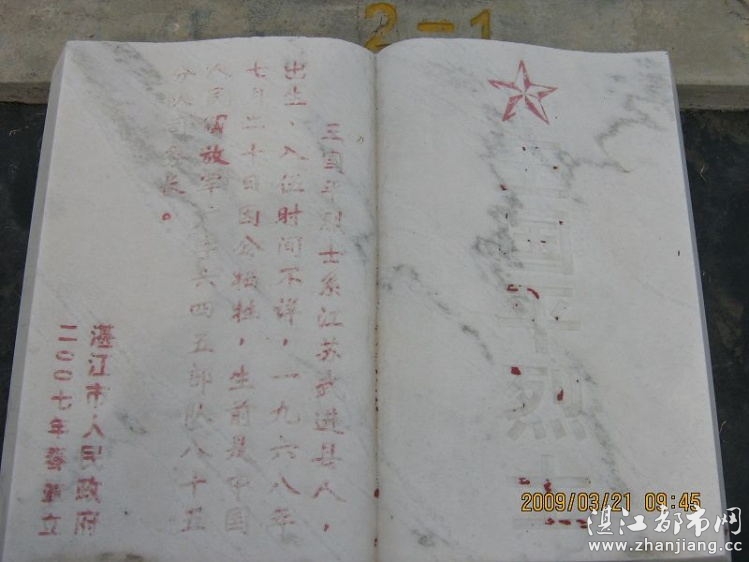 2-1
国平烈士
王国平烈士系江苏武进县人，
出生、入伍时间不详，一九六八年
七月二十日因公牺牲，生前是中国
人民解放军六四五部队八十五
分队长。
湛江市人民政府
二〇〇七年春重立
2009/03/21 09:45
湛江都市网
www.zhanjiang.cc